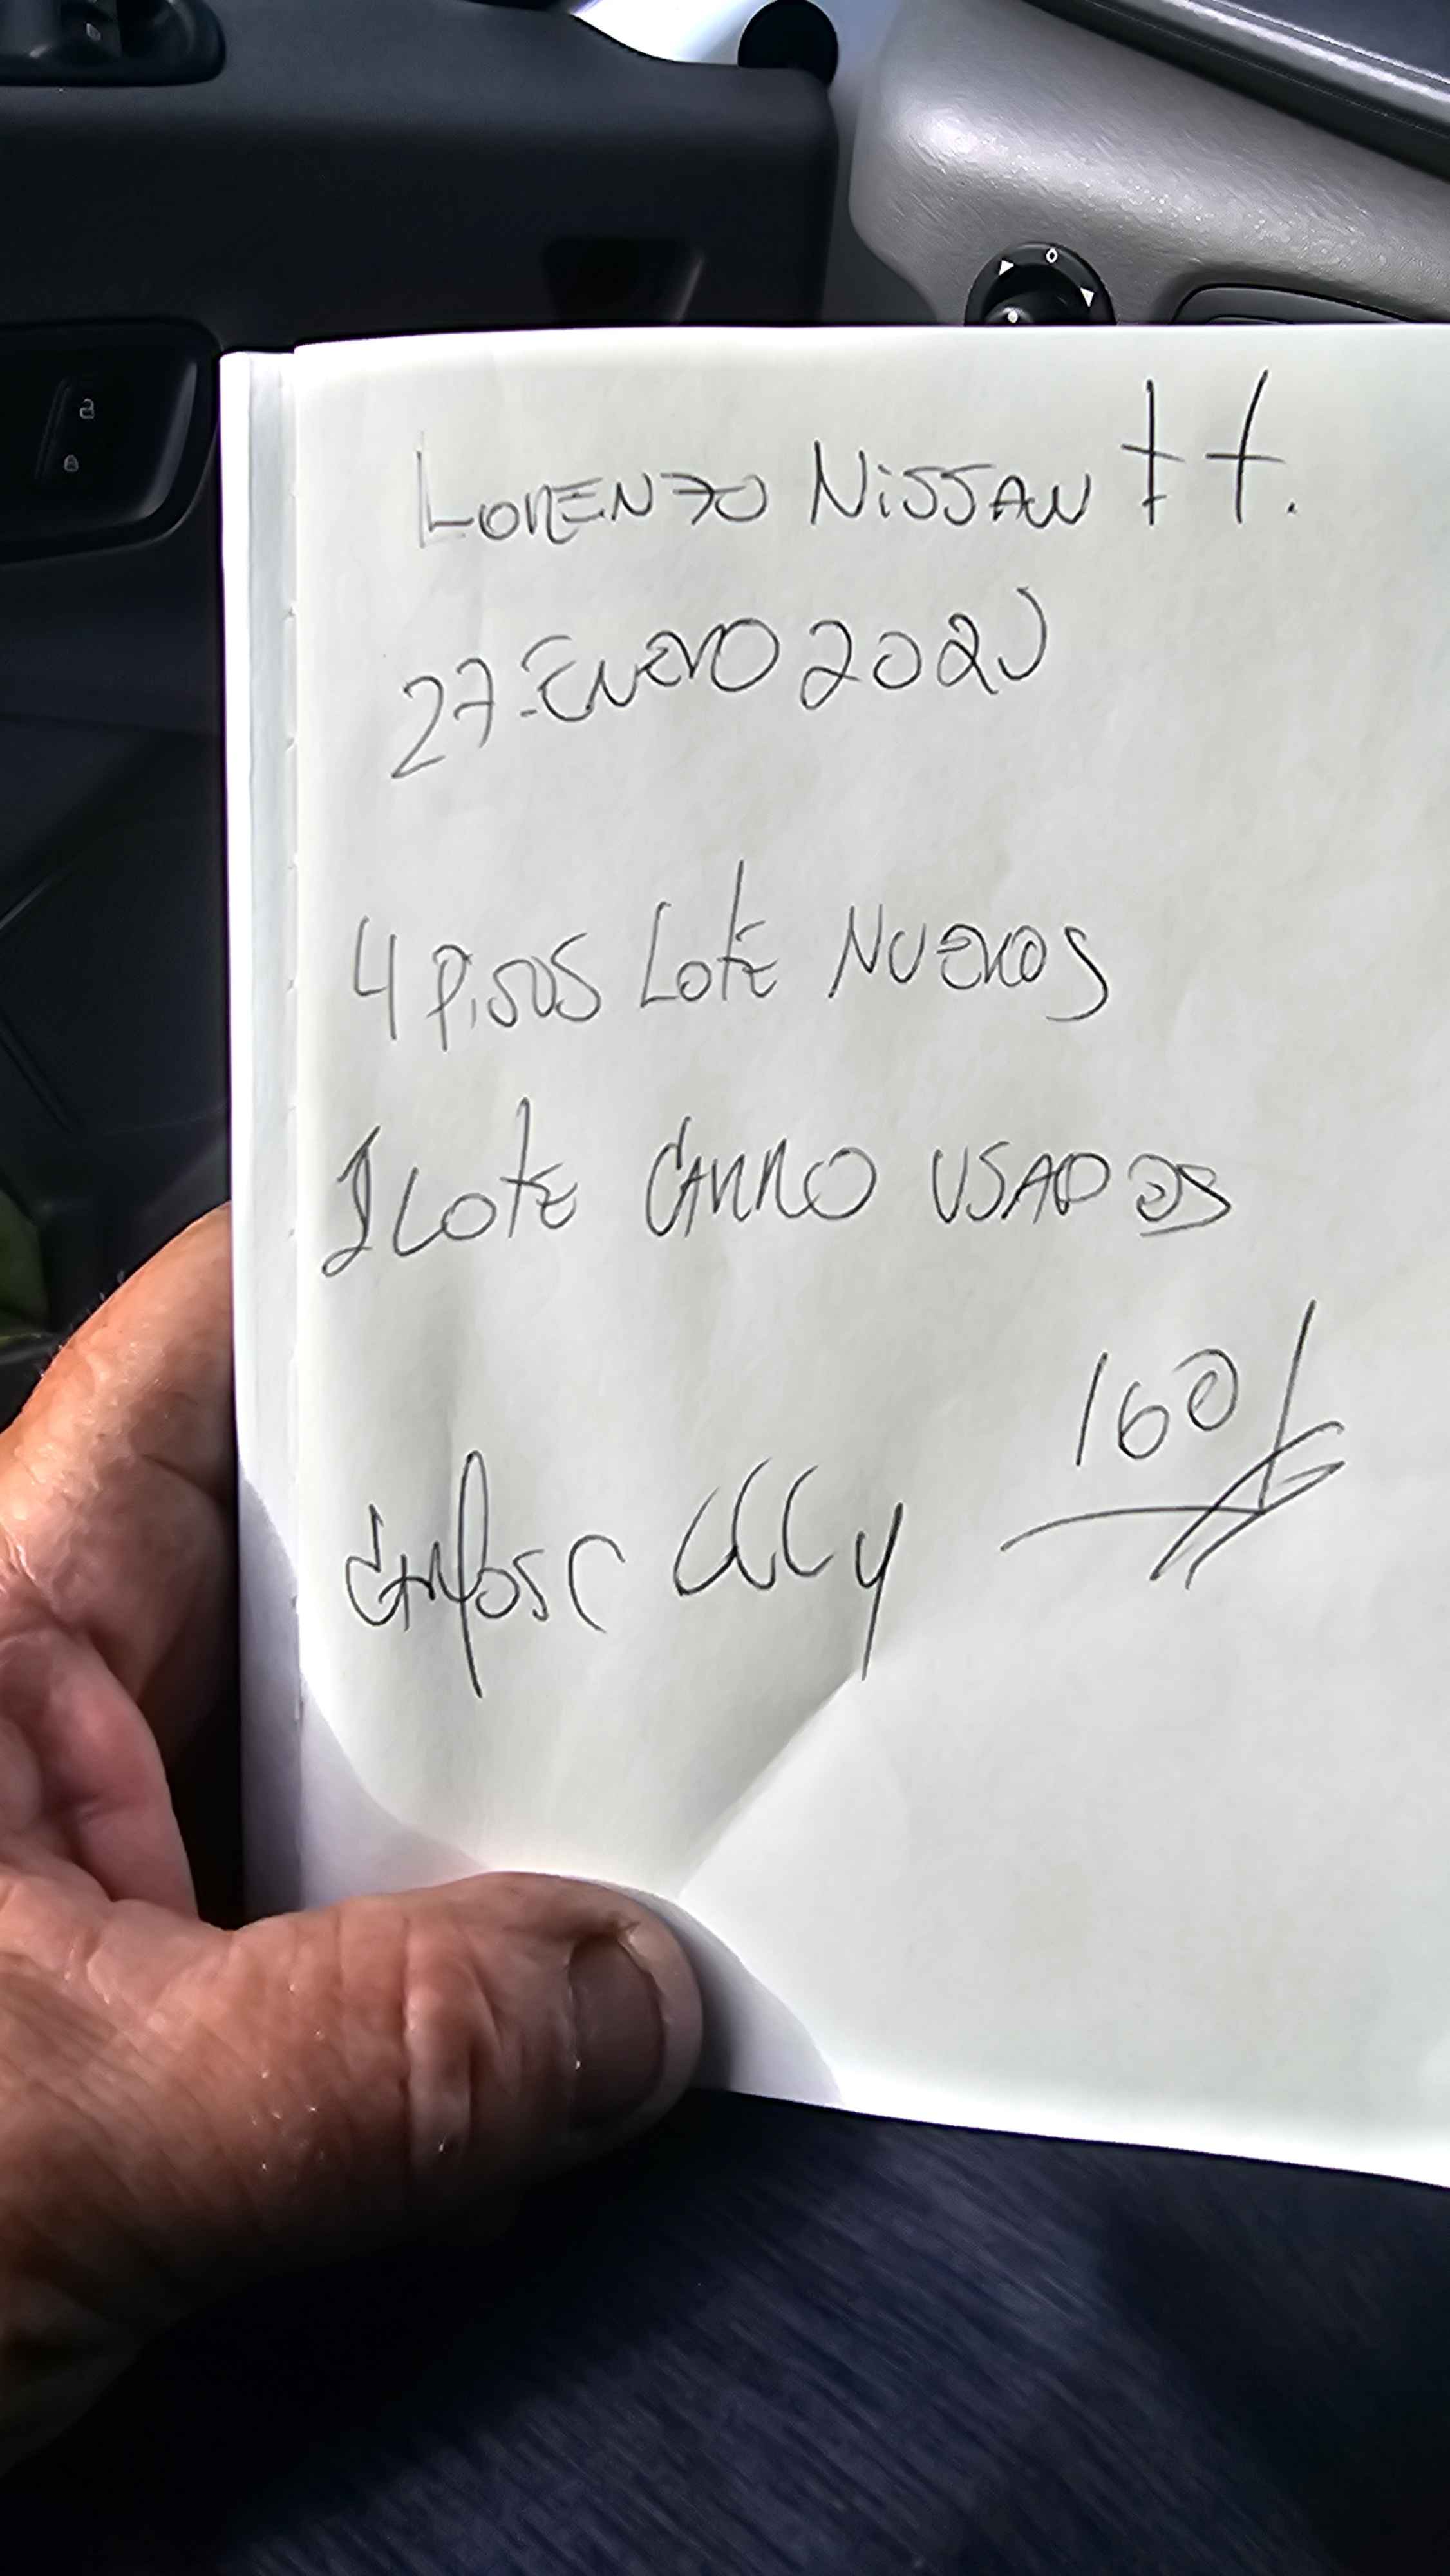 LORENZO NISSAN ††.
27-ENERO 2020
4 PISOS LOTE NUEVOS
1 LOTE CARRO USADOS
160